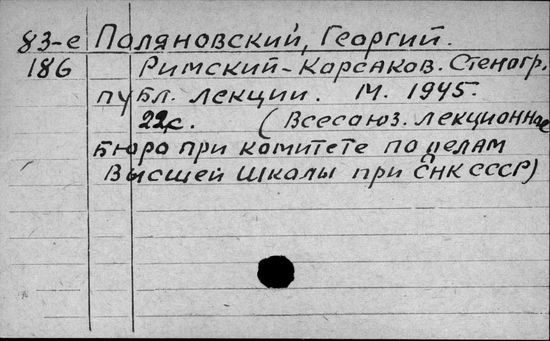 83-е Поляновский, Георгий.
186 Римский-Корсаков. Стеногр.
публ. лекции. М. 1945.
22с. (Всесоюз. лекционное
бюро при комитете по делам
Высшей Школы при СНК СССР)